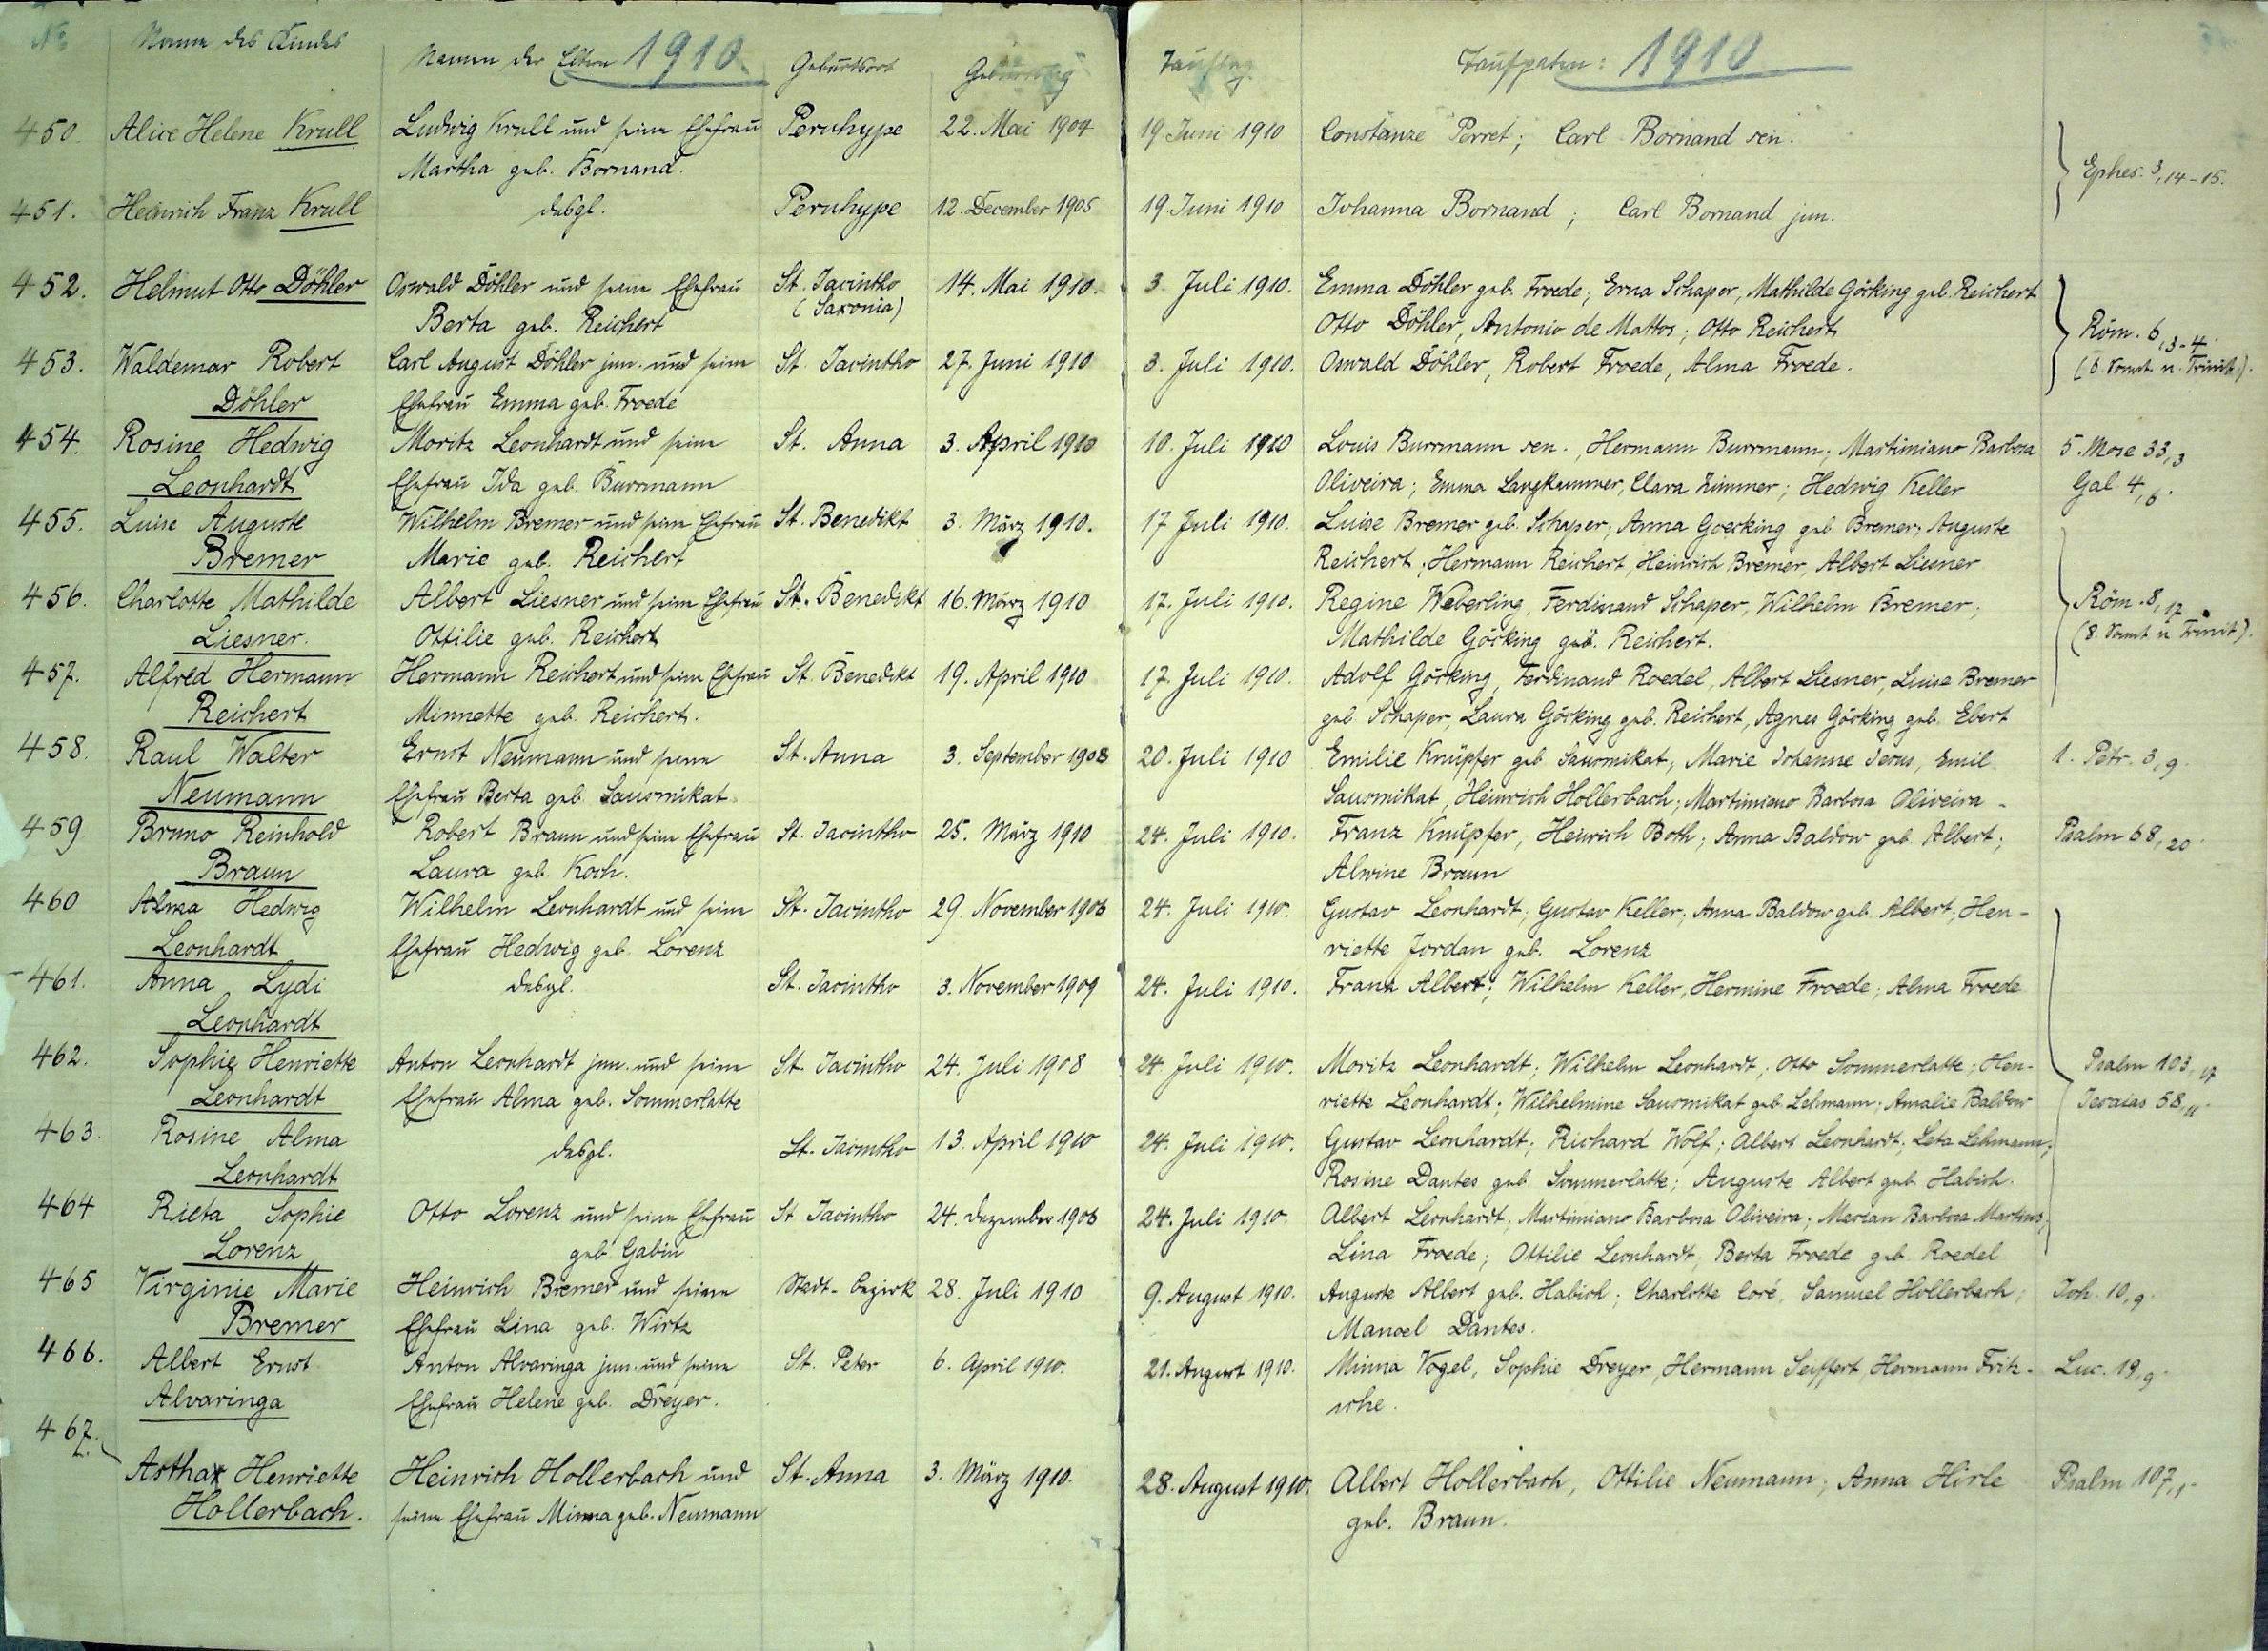 No Name des Kindes Namen der Eltern 1910 Geburtsort Geburtstag Tauftag Taufpaten: 1910
450. Alice Helene Krull Ludwig Krull und seine Ehefrau Peruhype 22. Mai 1904 19 Juni 1910 Constanze Perret; Carl Bornand sen.
Martha geb. Bornand. Ephes. 3,14-15.
451. Heinrich Franz Krull desgl. Peruhype 12. December 1905 19. Juni 1910 Johanna Bornand; Carl Bornand jun.
452. Helmut Otto Döhler Oswald Döhler und seine Ehefrau St. Jacintho 14. Mai 1910. 3. Juli 1910. Emma Döhler geb. Froede; Erna Schaper, Mathilde Göcking geb. Reichert
Berta geb. Reichert (Saxonia) Otto Döhler, Antonio de Mattos; Otto Reichert Röm. 6,3-4.
453. Waldemar Robert Carl August Döhler jun. und seine St. Jacintho 27. Juni 1910 3. Juli 1910. Oswald Döhler, Robert Froede, Alma Froede. (6. Sonnt. n. Trinit).
Döhler Ehefrau Emma geb. Froede
454. Rosine Hedwig Moritz Leonhardt und seine St. Anna 3. April 1910 10. Juli 1910 Louis Burrmann sen., Hermann Burrmann; Martimiano Barbosa 5. Mose 33,3
Leonhardt Ehefrau Ida geb. Burrmann Oliveira; Emma Langkammer, Clara Zimmer; Hedwig Keller Gal. 4,6.
455. Luise Auguste Wilhelm Bremer und seine Ehefrau St. Benedikt 3. März 1910. 17 Juli 1910. Luise Bremer geb. Schaper; Anna Goecking geb Bremer; Auguste
Bremer Marie geb. Reichert Reichert; Hermann Reichert, Heinrich Bremer, Albert Liesner
456. Charlotte Mathilde Albert Liesner und seine Ehefrau St. Benedikt 16. März 1910 17. Juli 1910. Regine Weberling, Ferdinand Schaper, Wilhelm Bremer; Röm. 8,17
Liesner. Ottilie geb. Reichert Mathilde Göcking geb. Reichert. (8. Sonnt n Trinit).
457. Alfred Hermann Hermann Reichert und seine Ehefrau St. Benedikt 19. April 1910 17. Juli 1910. Adolf Göcking, Ferdinand Roedel, Albert Liesner, Luise Bremer
Reichert Minnette geb. Reichert. geb. Schaper, Laura Göcking geb. Reichert, Agnes Göcking geb. Ebert
458. Raul Walter Ernst Neumann und seine St. Anna 3. September 1908 20. Juli 1910 Emilie Knüpfer geb Sausmikat, Marie Johanne Emil 1. Petr. 3,9.
Neumann Ehefrau Berta geb. Sausmikat Sausmikat, Heinrich Hollerbach; Martimiano Barbosa Oliveira
459 Bruno Reinhold Robert Braun und seine Ehefrau St. Jacintho 25. März 1910 24. Juli 1910. Franz Knüpfer, Heinrich Both; Anna Baldow geb Albert; Psalm 68,20.
Braun Laura geb. Koch. Alwine Braun
460 Alma Hedwig Wilhelm Leonhardt und seine St. Jacintho 29. November 24. Juli 1910. Gustav Leonhardt; Gustav Keller; Anna Baldow geb. Albert; Hen-
Leonhardt Ehefrau Hedwig geb. Lorenz riette Jordan geb. Lorenz
461. Anna Lydi desgl. St. Jacintho 3. November 1909 24. Juli 1910. Franz Albert; Wilhelm Keller, Hermine Froede; Alma Froede
Leonhardt
462. Sophie Henriette Anton Leonhardt jun. und seine St. Jacintho 24. Juli 1908 24 Juli 1910. Moritz Leonhardt; Wilhelm Leonhardt; Otto Sommerlatte; Hen- Psalm 103,17
Leonhardt Ehefrau Alma geb. Sommerlatte riette Leonhardt; Wilhelmine Sausmikat geb Lehmann; Amalie Baldow Jesaias 58,11.
463. Rosine Alma desgl. St. Jacintho 13. April 1910 24. Juli 1910. Gustav Leonhardt; Richard Wolf; Albert Leonhardt; Leta Lehmann;
Leonhardt Rosine Dantes geb. Sommerlatte; Auguste Albert geb. Habich.
464 Rieta Sophie Otto Lorenz und seine Ehefrau St Jacintho 24. Dezember 24. Juli 1910. Albert Leonhardt; Martimiano Barbosa Oliveira; Barbosa Martins;
Lorenz geb Gabin Lina Froede; Ottilie Leonhardt; Berta Froede geb. Roedel
465 Virginie Marie Heinrich Bremer und seine Stadt-bezirk 28. Juli 1910 9. August 1910. Auguste Albert geb. Habich; Charlotte Coré, Samuel Hollerbach; Joh. 10,9.
Bremer Ehefrau Lina geb. Wirtz Manoel Dantes.
466. Albert Ernst Anton Alvaringa jun. und seine St. Peter 6. April 1910. 21. August 1910. Minna Vogel, Sophie Dreyer, Hermann Seiffert Hermann Fritz- Luc. 19,9.
Alvaringa Ehefrau Helene geb. Dreyer. sche.
467.
Astha Henriette Heinrich Hollerbach und St. Anna 3. März 1910. 28. August 1910. Albert Hollerbach, Ottilie Neumann; Anna Hirle Psalm 107,1.
Hollerbach. seine Ehefrau Minna geb. Neumann geb. Braun.